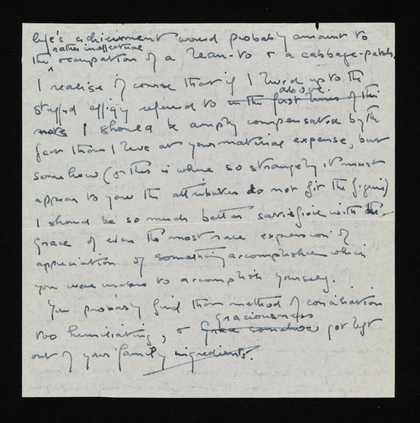 life's achievement would probably amount to
the rather ineffectual occupation of a lean-to & a cabbage-patch.
I realise of course that if I lived up to the
stuffed effigy referred to above in the first lines of this
note I should be amply compensated by the
fact that I live at your material expense, but
somehow (& this is where so strangely it must
appear to you the attributes do not fit the figure)
I should be so much better satisfied with the
grace of even the most rare expression of
appreciation of something accomplished which
you were unable to accomplish yourself.
You probably find that method of conciliation
too humiliating, & graciousness got left
out of your family ingredients.